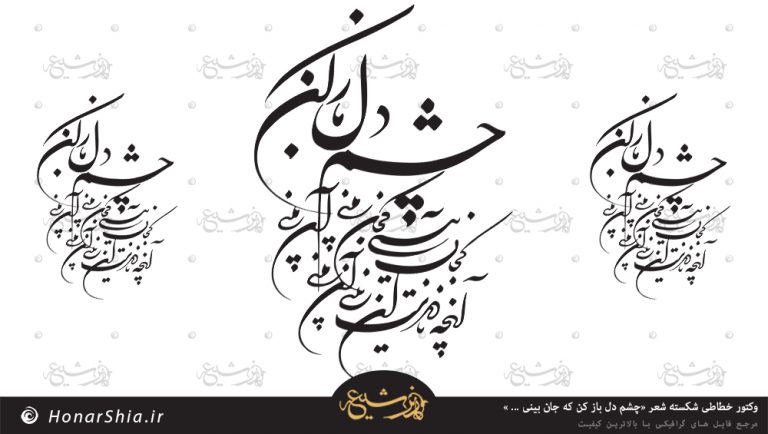 چشم دل باز کن
که جان بینی
آنچه نادیدنیست آن بینی
چشم دل باز کن
که جان بینی
آنچه نادیدنیست آن بینی
چشم دل باز کن
که جان بینی
آنچه نادیدنیست آن بینی
هنر شیعه
وکتور خطاطی شکسته شعر «چشم دل باز کن که جان بینی ... »
مرجع فایل های گرافیکی با بالاترین کیفیت
© HonarShia.ir